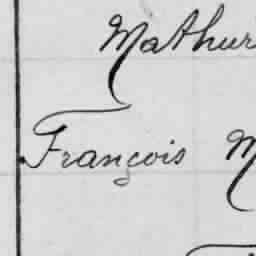 Mathur
François M